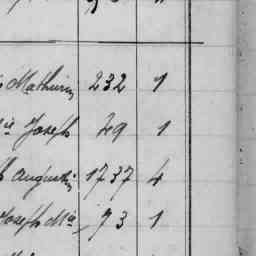 Mathurin 232 1
Joseph 29 1
Augustin 1737 4
Joseph Mie 73 1